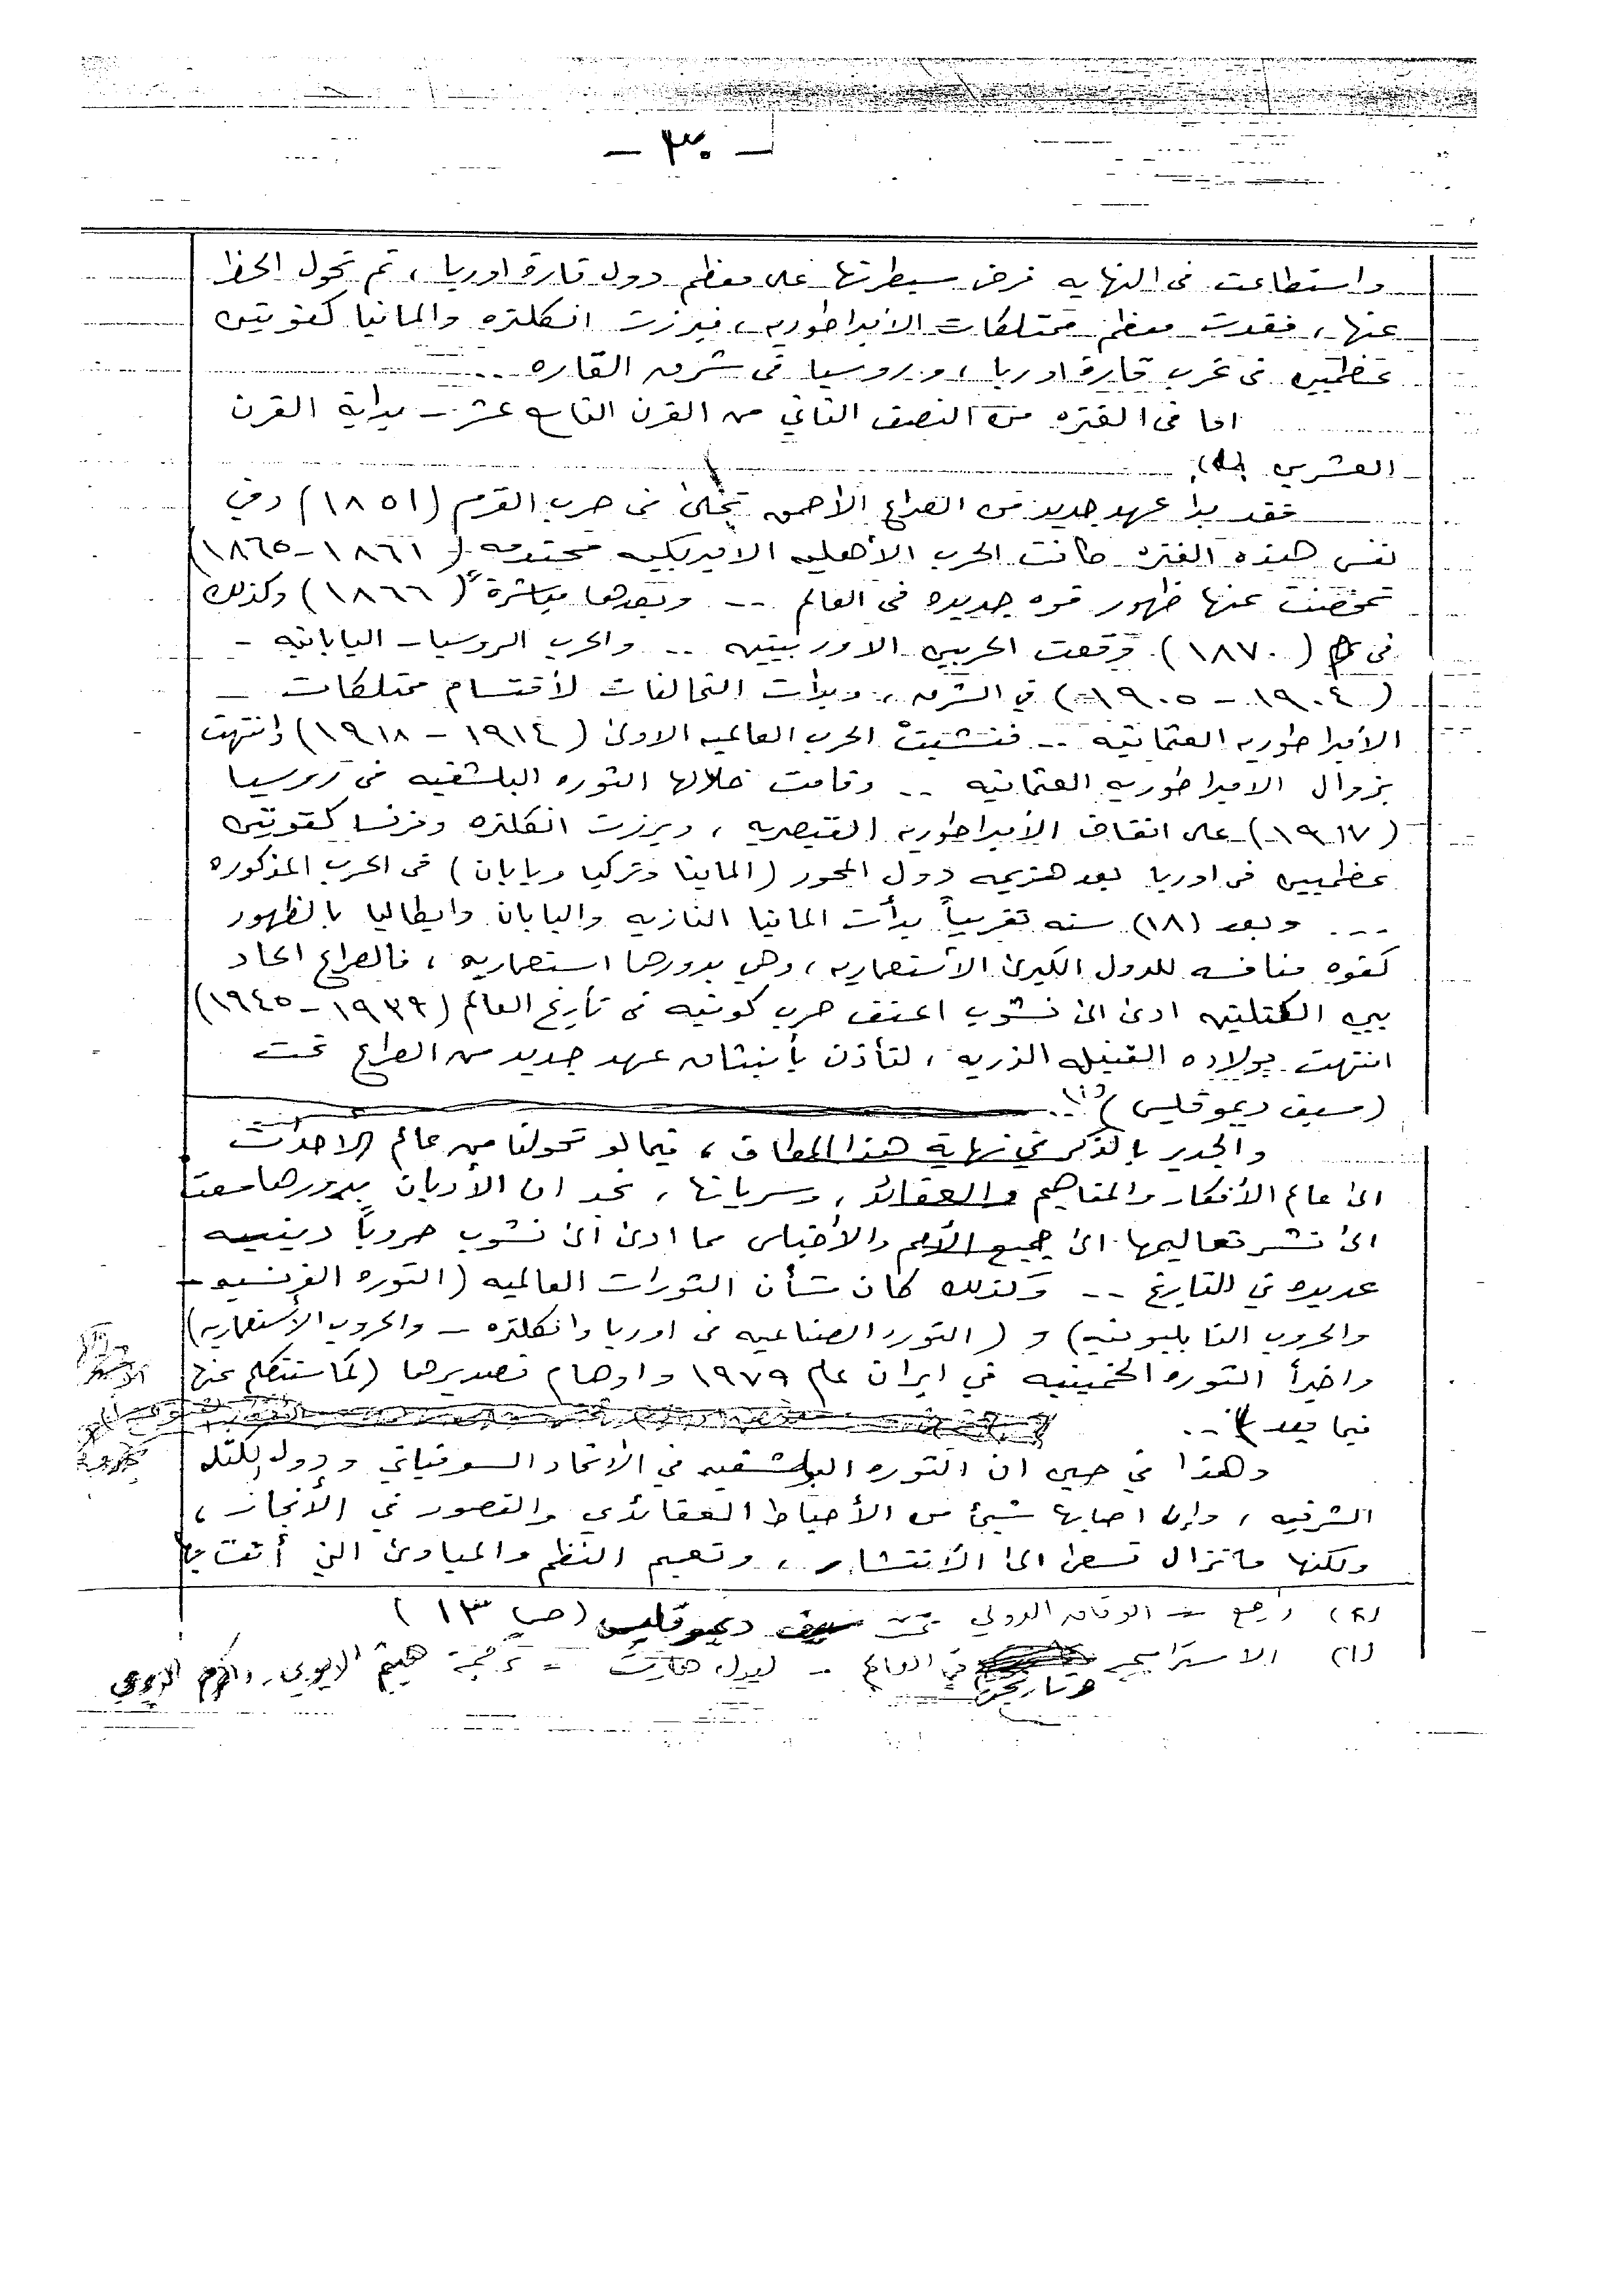 - ٣٠ -
واستطاعت فى النهايه فرض سيطرتها على معظم دول قارة اوربا ، ثم تحول الحظ
عنها ، ففقدت معظم ممتلكات الأمبراطوريه ، فبرزت انكلتره والمانيا كقوتين
عظميين فى غرب قارة اوربا ، وروسيا فى شرق القاره ..
اما فى الفتره من النصف الثاني من القرن التاسع عشر - بداية القرن
العشرين
فقد بدا عهد جديد من الصراع الأحمق تجلى فى حرب القرم (١٨٥١) وفي
نفس هذه الفتره كانت الحرب الأهليه الأمريكيه محتدمه (١٨٦١-١٨٦٥)
تمخضت عنها ظهور قوه جديده في العالم .. وبعدها مباشرةً (١٨٦٦) وكذلك
فى (١٨٧٠) وقعت الحربين الاوربيتين .. والحرب الروسيا - اليابانيه -
(١٩٠٤ - ١٩٠٥) في الشرق ، وبدات التحالفات لأقتسام ممتلكات -
الأمبراطوريه العثمانيه .. فنشبت الحرب العالميه الاولى (١٩١٤ - ١٩١٨) وانتهت
بزوال الامبراطوريه العثمانيه .. وقامت خلالها الثوره البلشفيه فى روسيا
(١٩١٧) على انقاض الأمبراطوريه القيصريه ، وبرزت انكلتره وفرنسا كقوتين
عظميين فى اوربا بعد هزيمه دول المحور (المانيا وتركيا ويابان) فى الحرب المذكوره
... وبعد (١٨) سنه تقريباً بدأت المانيا النازيه واليابان وايطاليا بالظهور
كقوه منافسه للدول الكبرى الأستعماريه ، وهي بدورها استعماريه ، فالصراع الحاد
بين الكتلتين ادى الى نشوب اعنف حرب كونيه فى تأريخ العالم (١٩٣٩-١٩٤٥)
انتهت بولاده القنبله الذريه ، لتأذن بأنبثاق عهد جديد من الصراع تحت
(سيف ديموقليس) (١) ..
والجدير بالذكر في نهاية هذا المطاف ، فيما لو تحولنا من عالم الاحداث
الى عالم الأفكار والمفاهيم والعقائد ، وسريانها ، نجد ان الأديان بدورها سعت
الى نشر تعاليمها الى جميع الأمم والأجناس مما ادى الى نشوب حروباً دينيه
عديده في التاريخ .. وكذلك كان شأن الثورات العالميه (الثوره الفرنسيه -
والحروب النابليونيه) و (الثوره الصناعيه فى اوربا وانكلتره - والحروب الأستعماريه)
واخيراً الثوره الخمينيه في ايران عام ١٩٧٩ واوهام تصديرها (كما سنتكلم عنها
فيما بعد) ..
وهذا في حين ان الثوره البلشفيه في الأتحاد السوفياتي ودول الكتله
الشرقيه ، وإن اصابها شيئ من الأحباط العقائدي والقصور في الأنجاز ،
ولكنها ماتزال تسعى الى الأنتشار ، وتعميم النظم والمبادئ التي أتت بها
(٢) راجع - الوفاق الدولي تحت سيف ديموقليس (ص ١٣)
(١) الاستراتيجيه وتاريخها في العالم - ليدل هارت - ترجمة هيثم الايوبي واكرم الديري